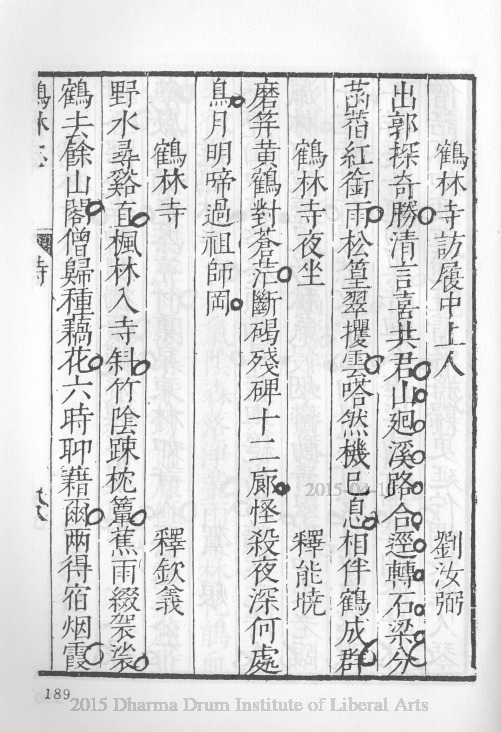 鶴林寺訪履中上人　劉汝弼
出郭探奇勝清言喜共君山廻溪路合逕轉石梁分
菡萏紅銜雨松篁翠攫雲嗒然機已息相伴鶴成羣
鶴林寺夜坐　釋能曉
磨笄黃鶴對蒼茫斷碣殘碑十二廊怪殺夜深何處
鳥月明啼過祖師岡
鶴林寺　釋欽義
野水尋谿直楓林入寺斜竹陰踈枕簟蕉雨綴袈裟
鶴去餘山閣僧歸種藕花六時聊藉爾兩得宿烟霞
189
2015-04-10
2015 Dharma Drum Institute of Liberal Arts